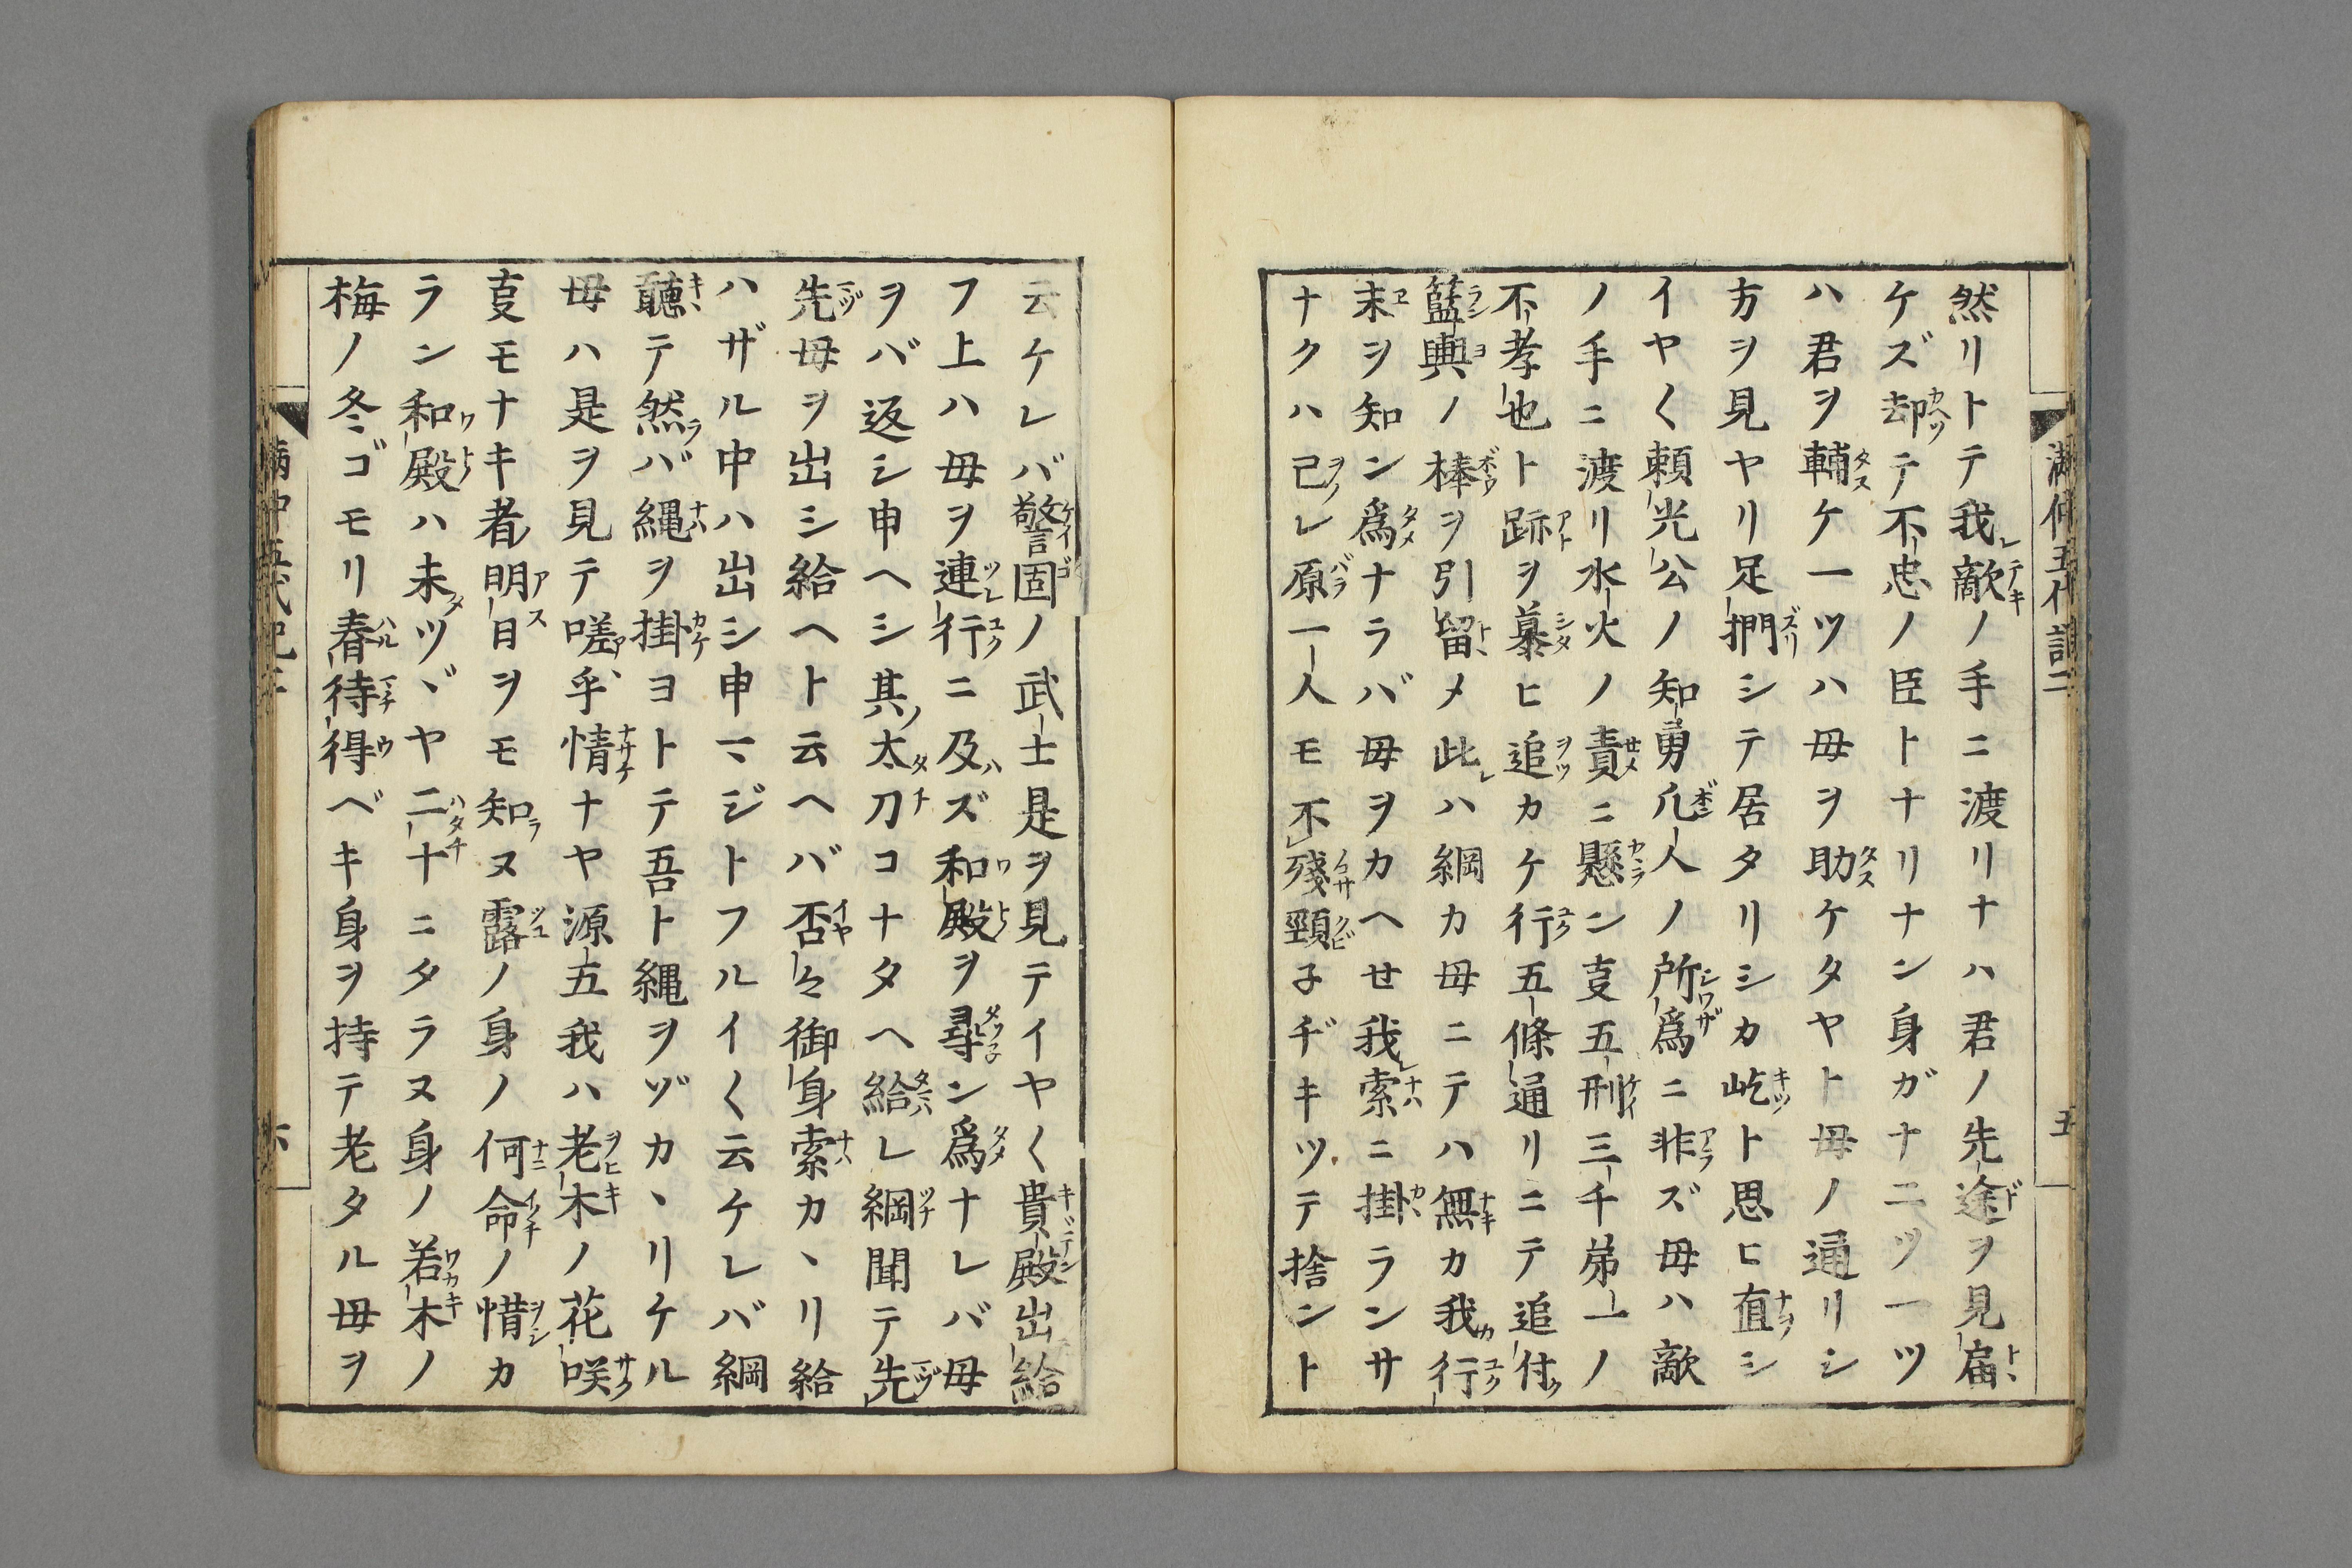 然リトテ我敵ノ手ニ渡リナハ君ノ先途ヲ見届
ケズ却テ不忠ノ臣トナリナン身ガナ二ツ一ツ
ハ君ヲ輔ケ一ツハ母ヲ助ケタヤト母ノ通リシ
方ヲ見ヤリ足摺シテ居タリシカ屹ト思ヒ直シ
イヤ〱頼光公ノ知勇凡人ノ所爲ニ非ズ母ハ敵
ノ手ニ渡リ水火ノ責ニ懸ン叓五刑三千弟一ノ
不孝也ト跡ヲ慕ヒ追カケ行五條通リニテ追付
籃輿ノ棒ヲ引留メ此ハ綱カ母ニテハ無カ我行
末ヲ知ン爲ナラバ母ヲカヘせ我索ニ掛ランサ
ナクハ己レ原一人モ不殘頸子ヂキツテ捨ント
五
云ケレバ警固ノ武士是ヲ見テイヤ〱貴殿出給
フ上ハ母ヲ連行ニ及ズ和殿ヲ尋ン爲ナレバ母
ヲバ返シ申ヘシ其太刀コナタヘ給レ綱聞テ先
先母ヲ出シ給ヘト云ヘバ否々御身索カヽリ給
ハザル中ハ出シ申マジトフルイ〱云ケレバ綱
聽テ然バ縄ヲ掛ヨトテ吾ト縄ヲヅカヽリケル
母ハ是ヲ見テ嗟乎情ナヤ源五我ハ老木ノ花咲
叓モナキ者明日ヲモ知ヌ露ノ身ノ何命ノ惜カ
ラン和殿ハ未ツヾヤ二十ニタラヌ身ノ若木ノ
梅ノ冬ゴモリ春待得ベキ身ヲ持テ老タル母ヲ
六